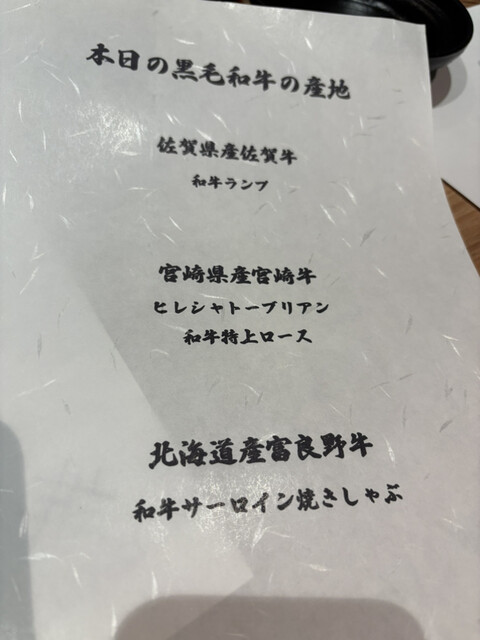 本日の黒毛和牛の産地
佐賀県産佐賀牛
和牛ランプ
宮崎県産宮崎牛
ヒレシャトーブリアン
和牛特上ロース
北海道産富良野牛
和牛サーロイン焼きしゃぶ